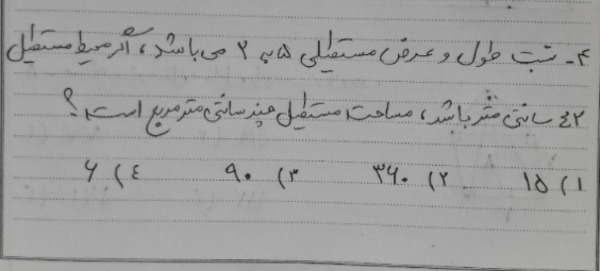 ۴ـ نسبت طول و عرض مستطیلی ۵ به ۲ می باشد، اگر محیط مستطیل
۴۲ سانتی متر باشد، مساحت مستطیل چند سانتی متر مربع است؟
۱) ۱۵ ۲) ۳۶۰ ۳) ۹۰ ۴) ۶